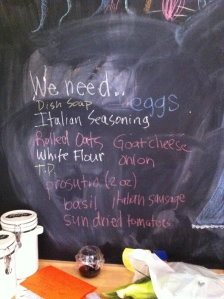 We need..
Dish Soap eggs
Italian Seasoning
Rolled Oats Goat cheese
White Flour onion
T.P.
prosutto (2 oz)
basil italian sausage
sundried tomatoes